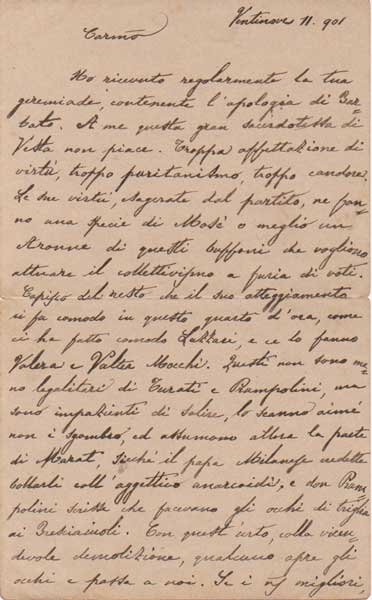 Ventinove 11. 901
Carmo
Ho ricevuto regolarmente la tua
geremiade, contenente l'apologia di Bar=
bato. A me questa gran sacerdotessa di
Vesta non piace. Troppa affettazione di
virtù, troppo puritanismo, troppo candore.
Le sue virtù, esagerate dal partito, ne fan=
no una specie di Mosè o meglio un
Aronne di questi buffoni che vogliono
attuare il collettivismo a furia di voti.
Capisco del resto che il suo atteggiamento
ci fa comodo in questo quarto d'ora, come
ci ha fatto comodo Lazzari, e ce lo fanno
Valera e Walter Mocchi. Questi non sono me=
no legaliteri di Turati e Prampolini, ma
sono impazienti di salire, lo scanno aimé
non i sgombro, ed assumono allora la parte
di Marat, sicchè il papa Milanese credette
bollarli coll'aggettivo anarcoidi, e don Pram=
polini scrisse che facevano gli occhi di triglia
ai Bresciainoli. Con quest'urto, colla vicen=
devole demolizione, qualcuno apre gli
occhi e passa a noi. Se i migliori,